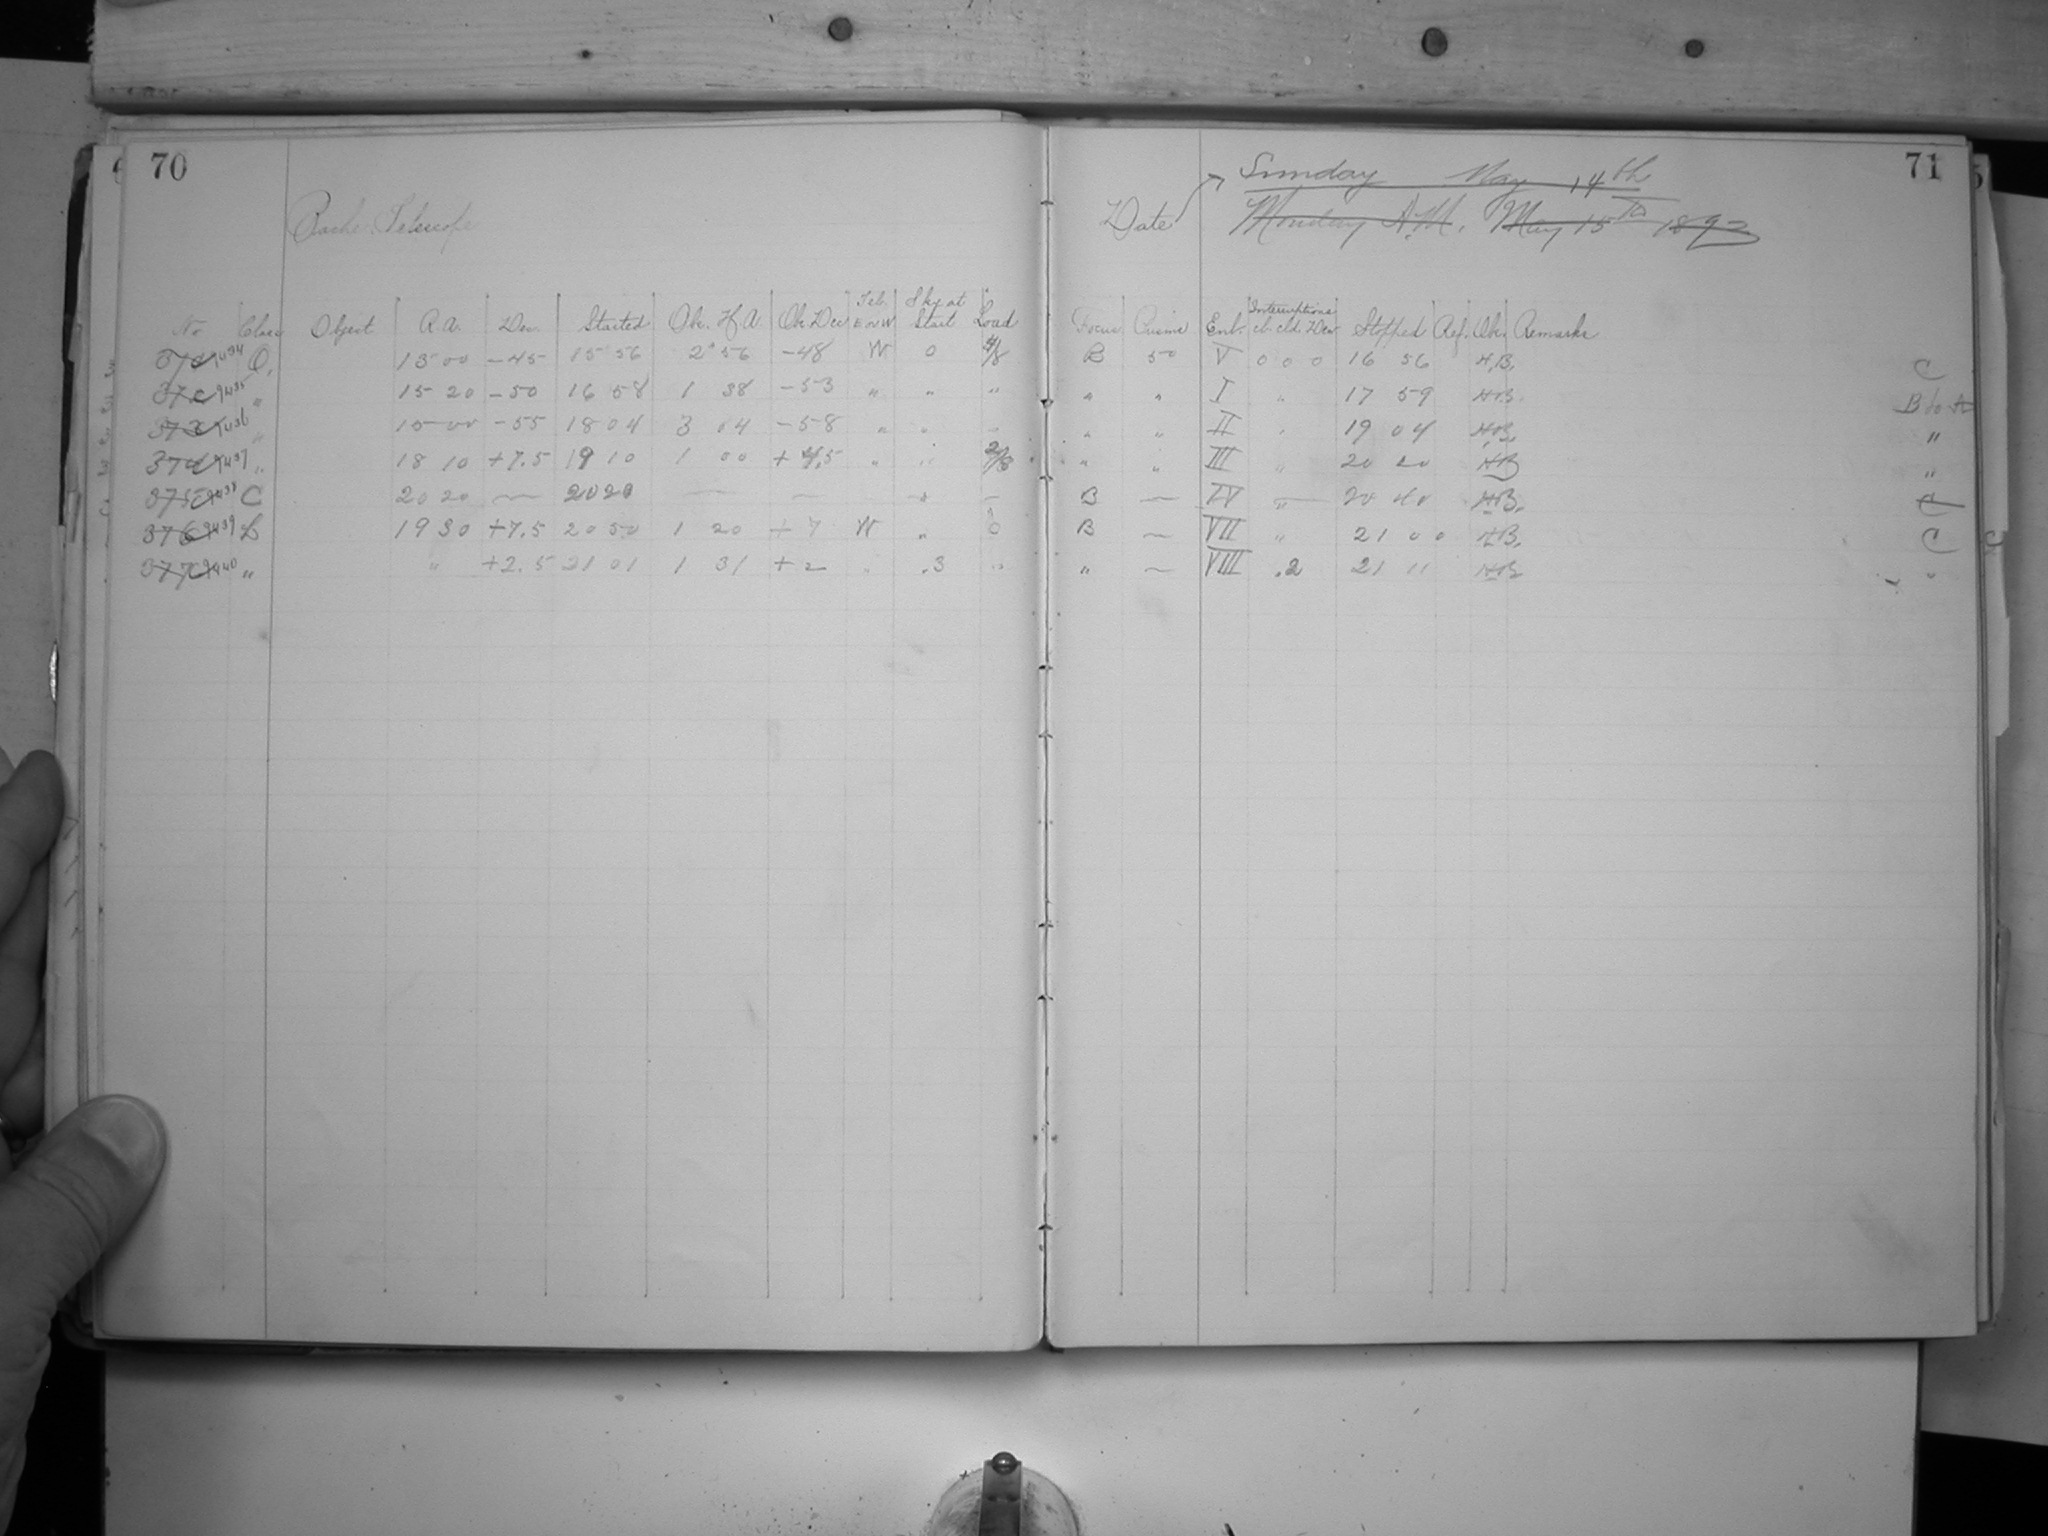 70
Bache Telescope
No Class Object R.A. Dec. Started Obs. H.A. Obs. Dec Tel. E or W Sky at Start Load
9434 O, 13 00 -45 15 56 2 56 -48 W 0 4/8
9435 " 15 20 -50 16 58 1 38 -53 " " "
9436 " 15 00 -55 18 04 3 04 -58 " " "
9437 " 18 10 +7.5 19 10 1 00 +4.5 " " 2/8
9438 C 20 20 — 20 20 — — " —
9439 L 19 30 +7.5 20 50 1 20 +7 W " 0
9440 " " +2.5 21 01 1 31 +2 " .3 "
71
Date
Sunday May 14th
Monday A.M. May 15th 1893
Focus Prisms Enb. Interruptions cl. cld. Dew Stopped Ref. Obs. Remarks
B 50 V 0 0 0 16 56 H.B. C
" " I " 17 59 H.B. B to
" " II " 19 04 H.B. "
" " III " 20 20 H.B "
B — IV " 20 40 H.B. C
B — VII " 21 00 H.B. C
" — VIII .2 21 11 H.B "